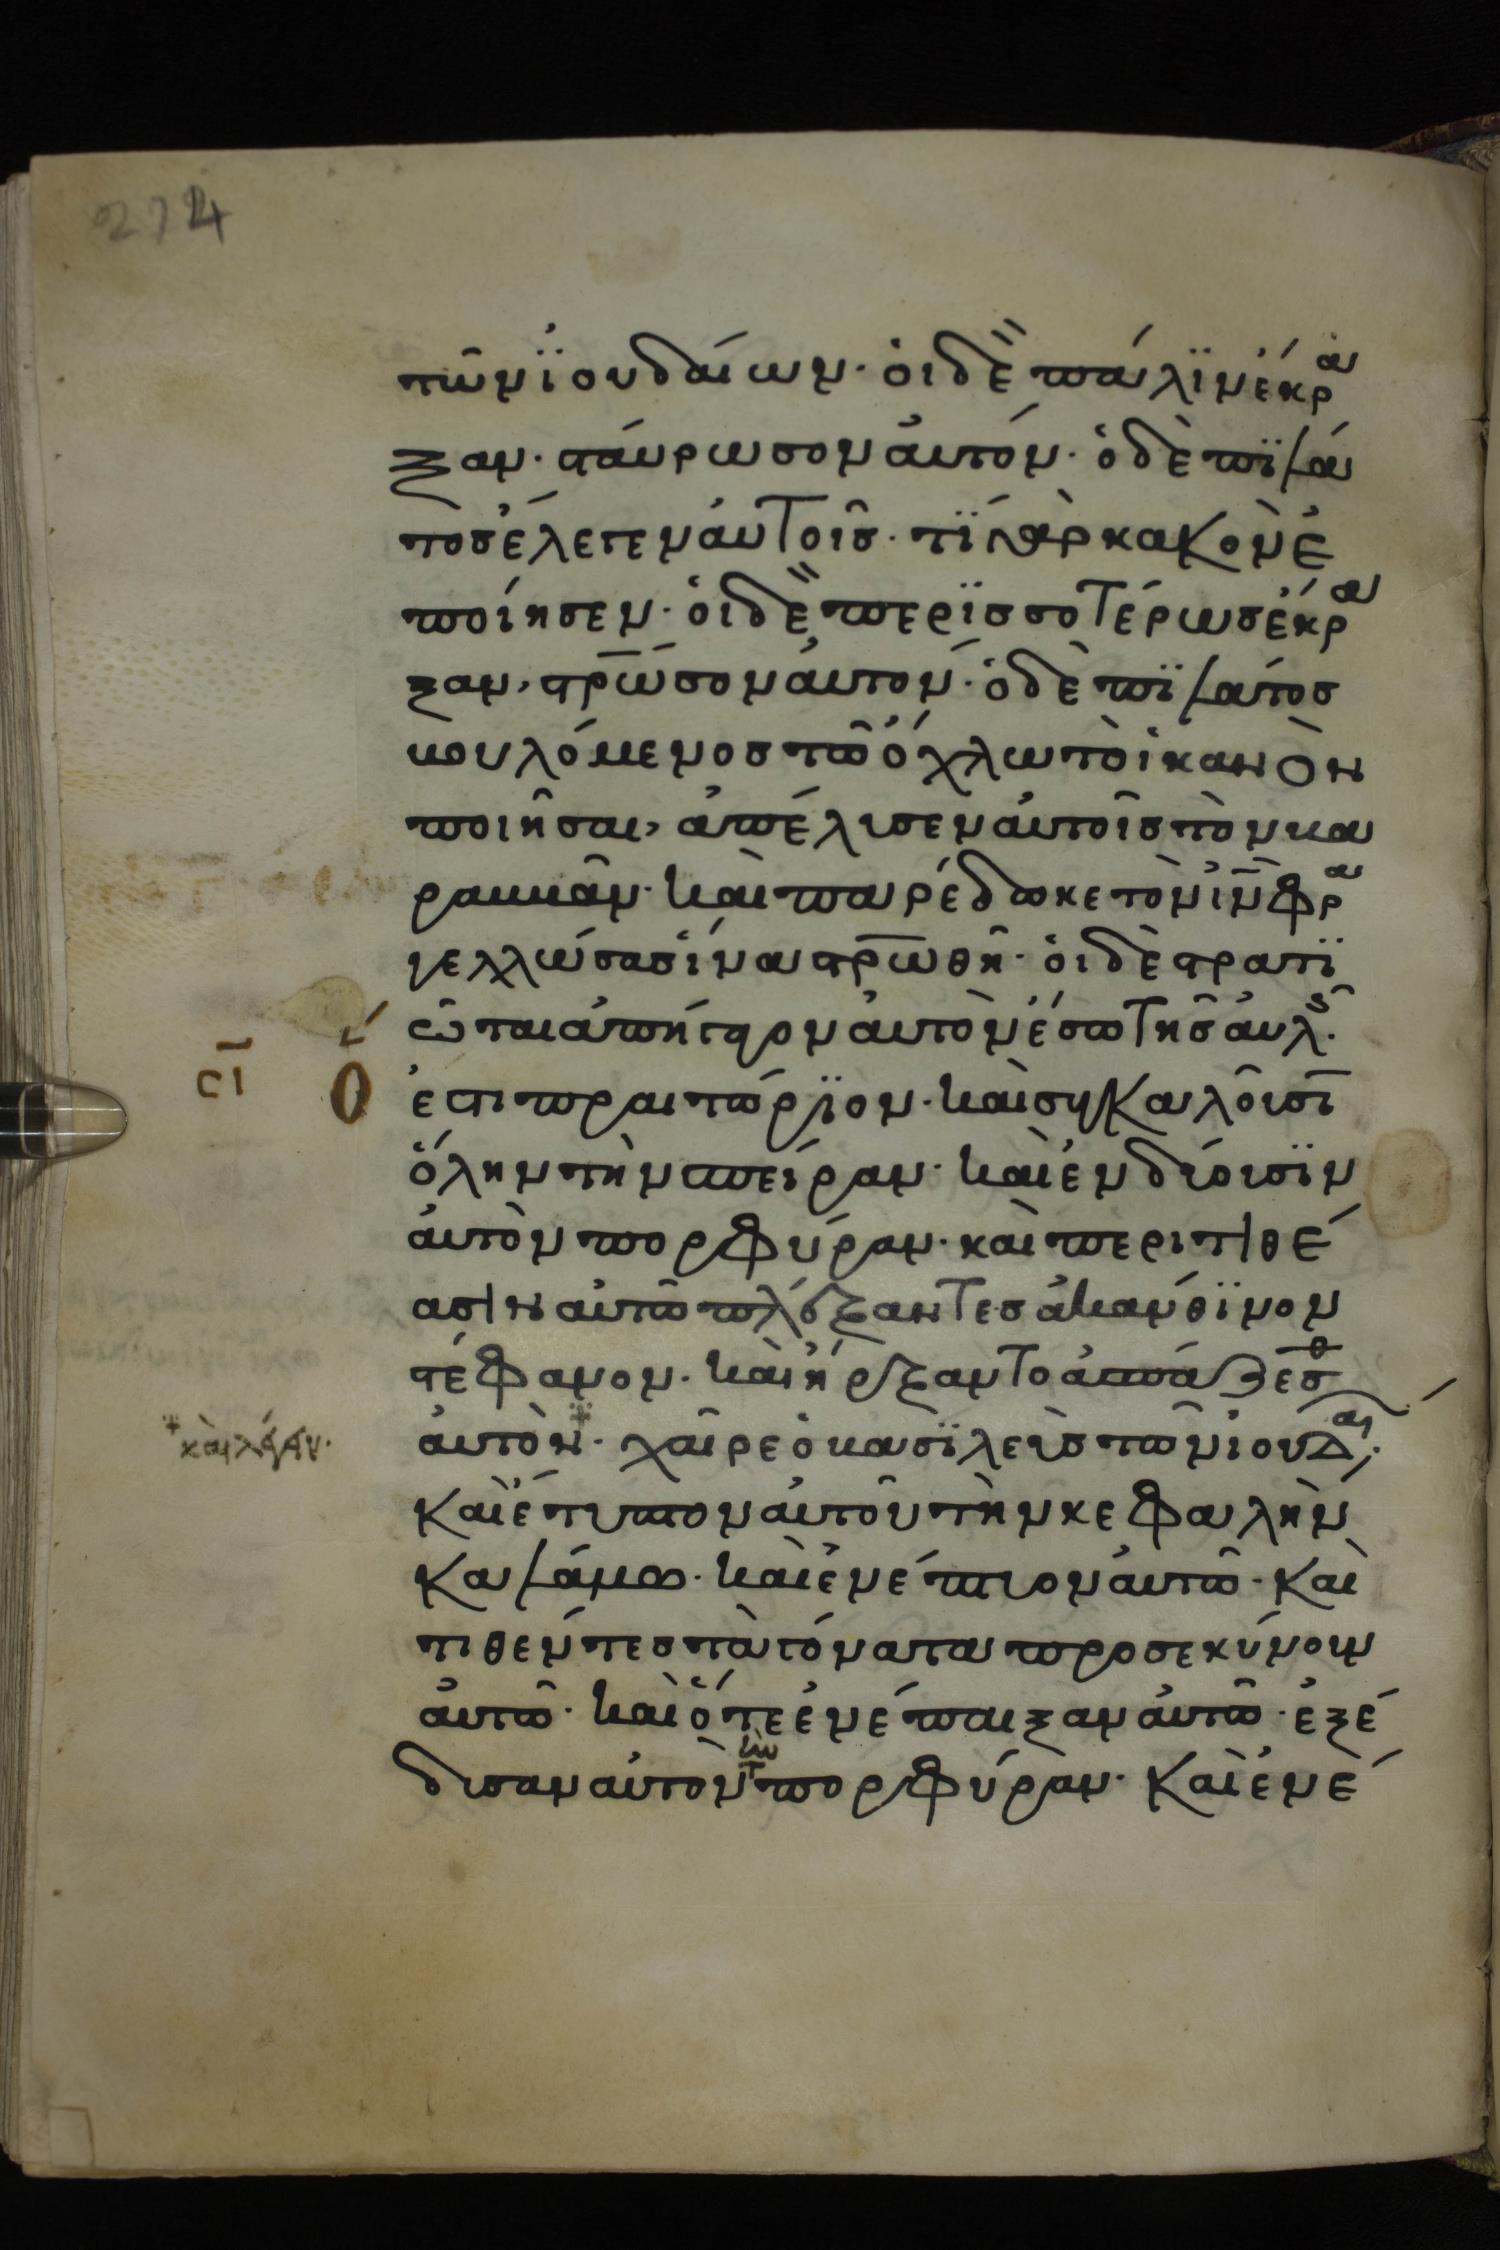 274
τῶν ἰουδαίων· οἱ δὲ πάλϊν ἔκρα
ξαν· σταύρωσον αὐτόν· ὁ δὲ πϊλά
τος ἔλεγεν αὐτοῖς· τί γὰρ κακὸν ἐ
ποίησεν· οἱ δὲ περϊσσοτέρως ἔκρα
ξαν, στρώσον αὐτον· ὁ δὲ πϊλάτος
βουλόμενος τῶ ὄχλω τὸ ἱκανὸν
ποιῆσαι, ἀπέλυσεν αὐτοῖς τὸν βα
ραββᾶν· καὶ παρέδωκε τὸν ιν φρα
γελλώσας ἵνα στρωθῆ· οἱ δὲ στρατϊ
ῶται ἀπήγαγον αὐτὸν ἔσω τῆς αὐλῆς·
ϛι ἐστι πραιτώρϊον· καὶ συγκαλοῦσι
ὅλην τὴν σπείραν· καὶ ἐνδύουσϊν
αὐτὸν πορφύραν· καὶ περιτιθέ
ασιν αὐτῶ πλέξαντες ἀκάνθϊνον
στέφανον· καὶ ἤρξαντο ἀσπάζεσθ
αὐτὸν· χαῖρε ὁ βασϊλεὺς τῶν ἰουδαι·
καὶ λέγειν·
καὶ ἔτυπτον αὐτοῦ τὴν κεφαλὴν
καλάμω· καὶ ἐνέπτυον αὐτῶ· καὶ
τιθέντες τὰ γόνατα προσεκύνουν
αὐτῶ· καὶ ὅτε ἐνέπαιξαν αὐτῶ· ἐξέ
δυσαν αὐτὸν τὴν πορφύραν· καὶ ἐνέ